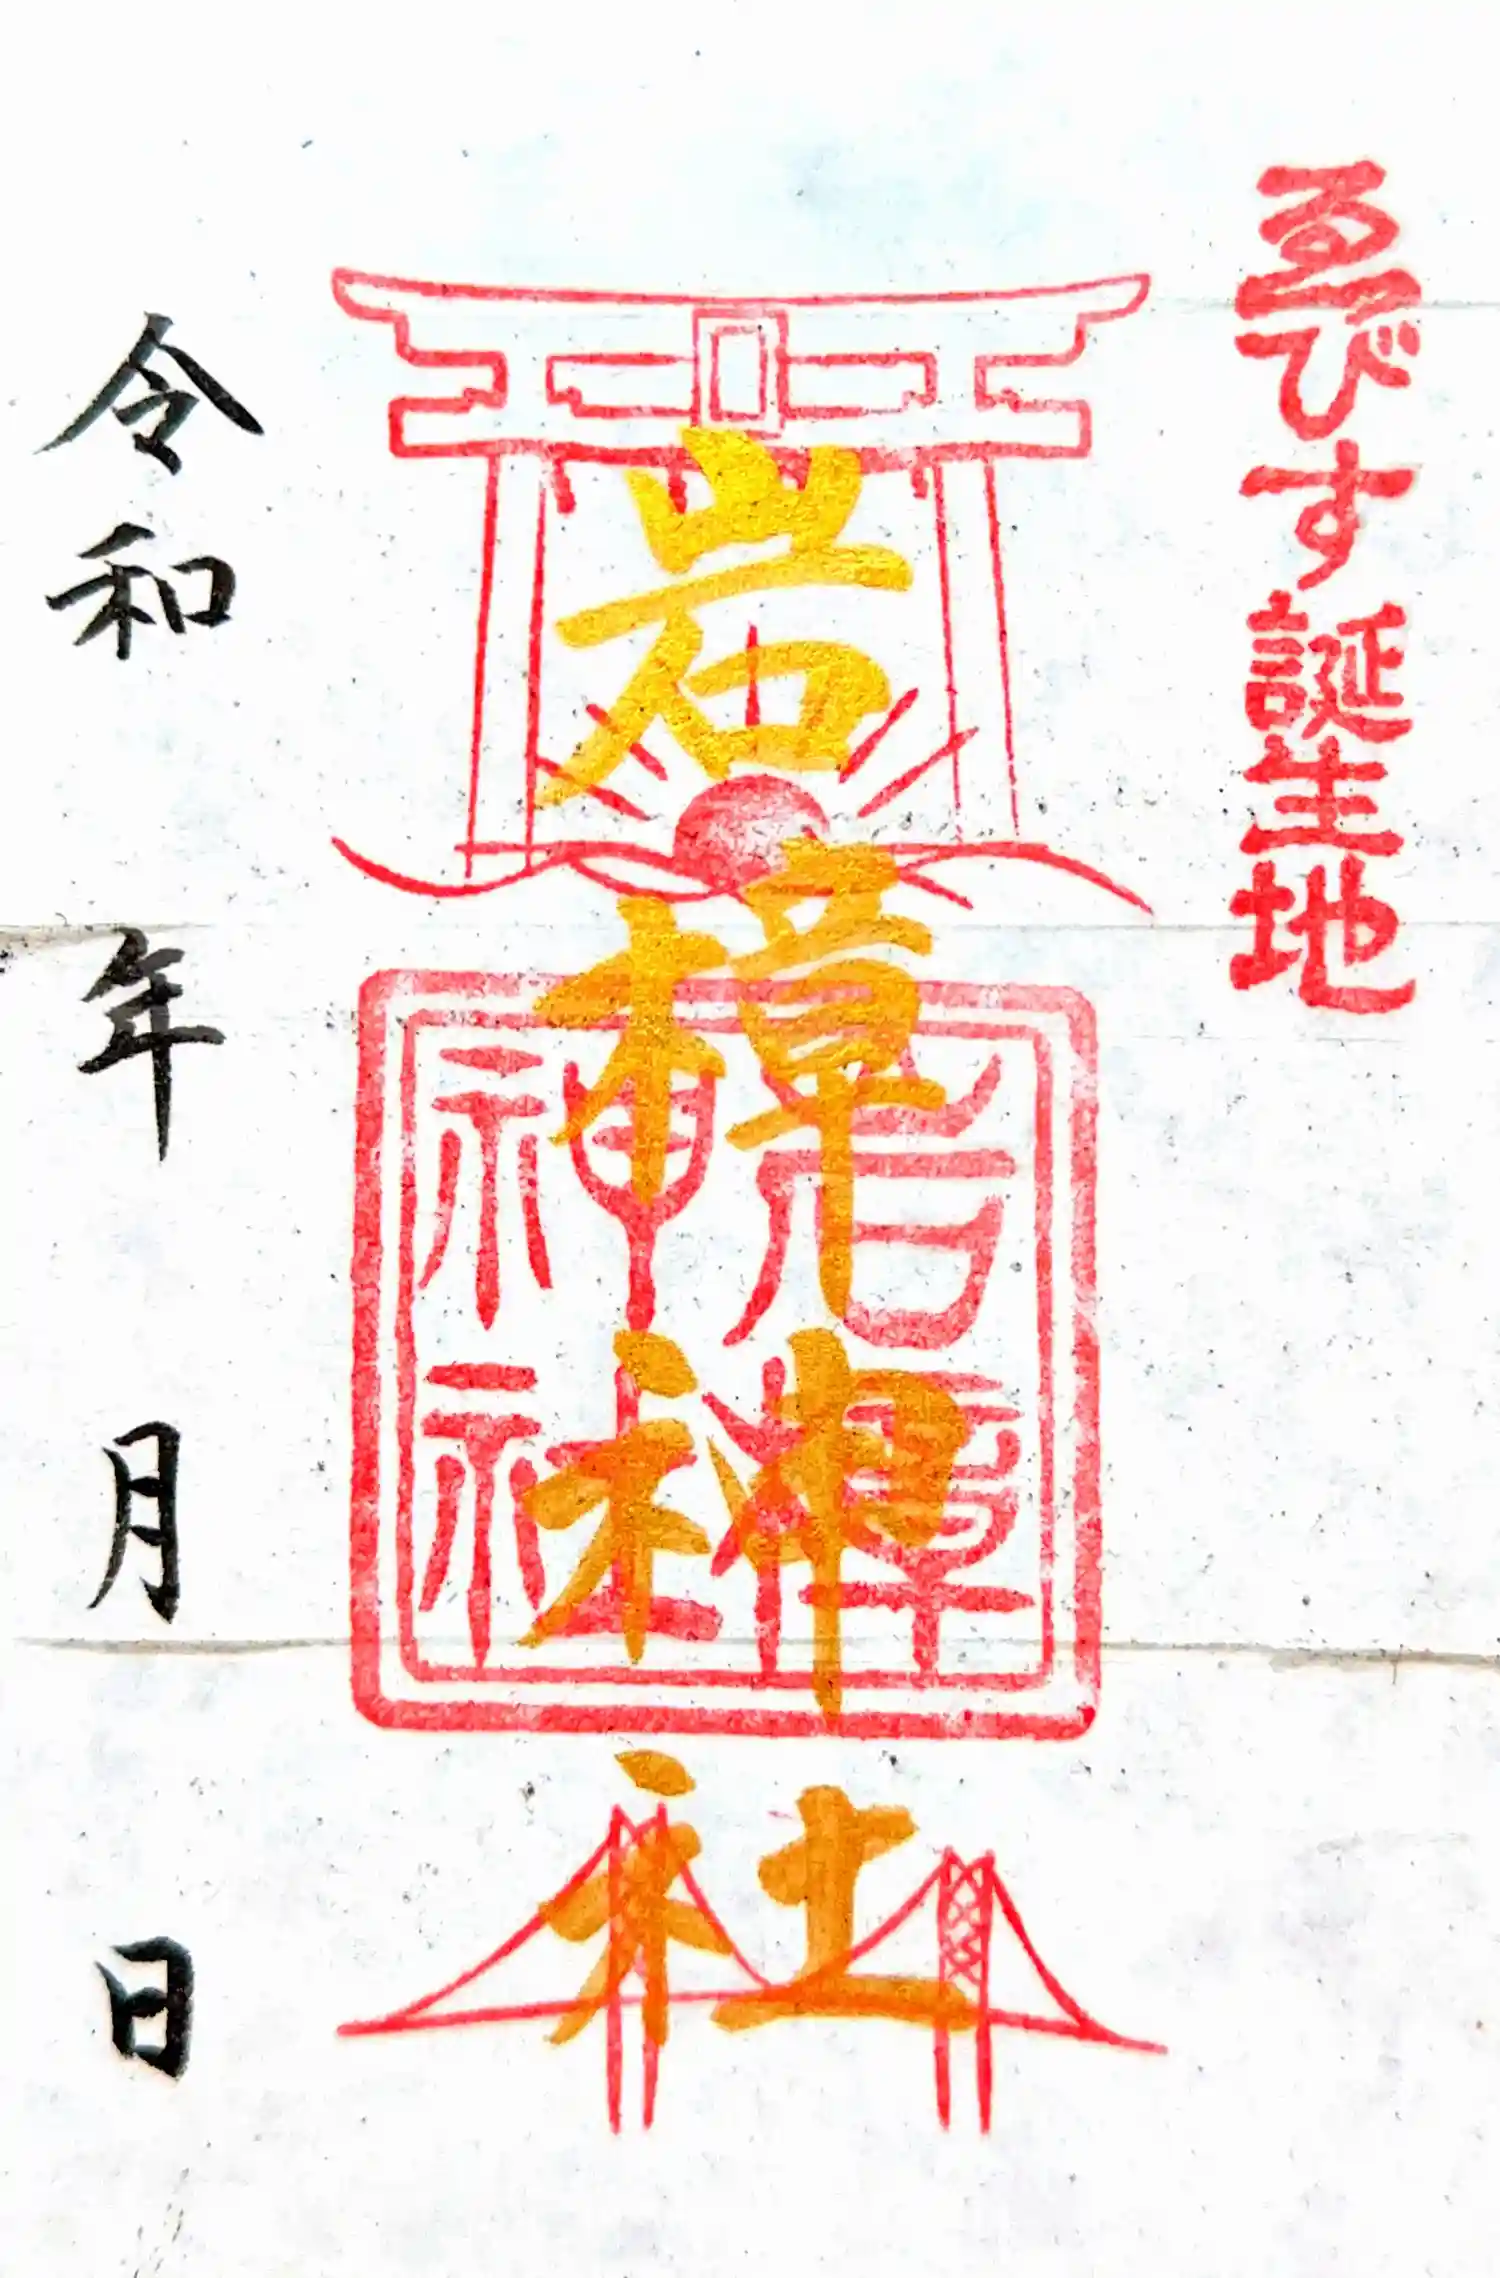 ゑびす誕生地
岩樟神社
岩樟神社
令和　年　月　日